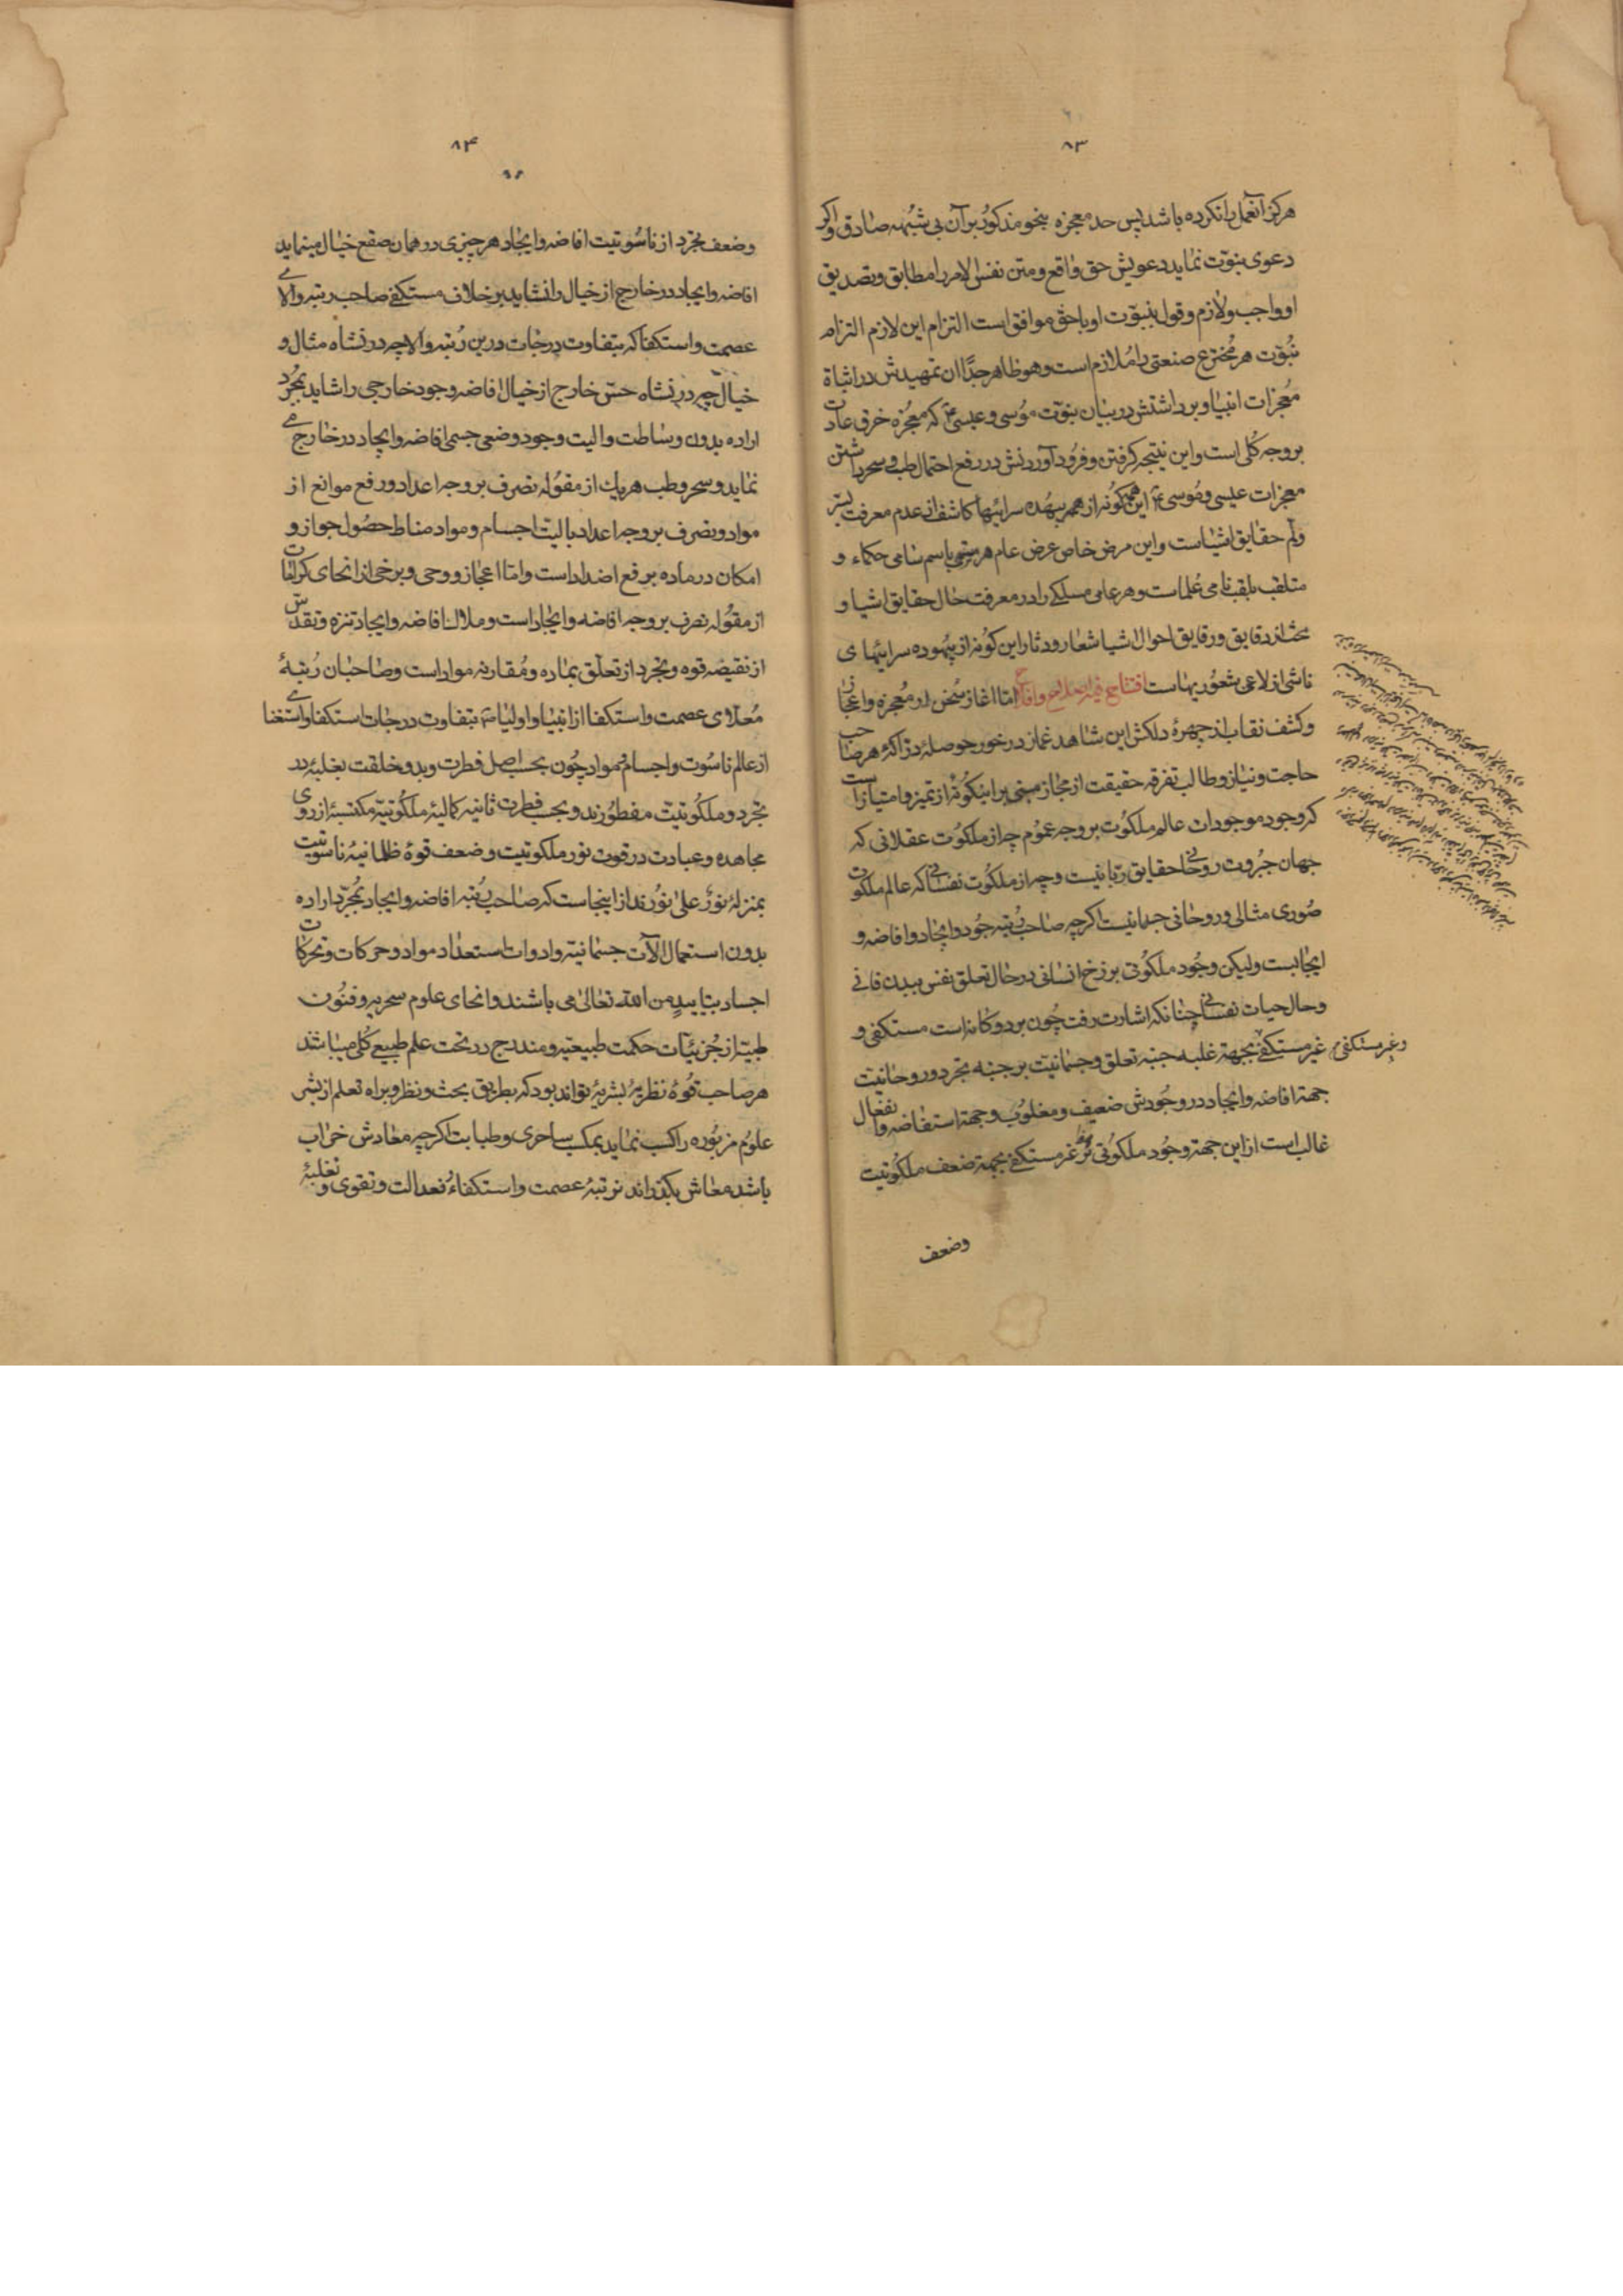 ۸۳
هرکز آنعمل را نکرده باشد پس حد معجزه بنحو مذکور بر آن بی شبهه صادق واکر
دعوی نبوت نماید دعویش حق و واقع و متن نفس الامر را مطابق و تصدیق
او واجب و لازم و قول بنبوت او با حق موافق است التزام این لازم التزام
نبوت هر مخترع صنعتی را ملازم است و هو ظاهر جدا ان تمهیدش در اثباة
معجزات انبیا و بر داشتش در بیان نبوت موسی و عیسی ع که معجزه خرق عادت
بروجه کلی است و این نتیجه کرفتن و فرود آوردنش در رفع احتمال طب و سحر داشتن
معجزات عیسی و موسی ع این همه کونه از همر بیهده سرائیها کاشف از عدم معرفت بسر
ولم حقایق اشیاست و این مرض خاص عرض عام هر متسمی باسم سامی حکماء و
متلقب بلقب نامی علماست و هر عامی مسلکی را در معرفت حال حقایق اشیا و
بحث از دقایق و رقایق احوال اشیا شعار و دثار این کونه از بیهوده سرائیهای
ناشی از لاعی شعوریهاست افتتاح فیه اصلاح وافلاح اما اغاز سخن در معجزه و اعجاز
و کشف نقاب از چهرهٔ دلکش این شاهد غماز در خور حوصلهٔ درّاکهٔ هر صاحب
حاجت و نیاز و طالب تفرقه حقیقت از مجاز مبنی بر اینکونه از تمیز و امتیاز است
که وجود موجودات عالم ملکوت بروجه عموم چه از ملکوت عقلانی که
جهان جبروت روحانی حقایق ربانیست و چه از ملکوت نفسانی که عالم ملکوت
صوری مثالی و روحانی جسمانیست اکرچه صاحب رتبه جود و ایجاد و افاضه و
ایجابست ولیکن وجود ملکوتی برزخ انسانی در حال تعلق نفس ببدن فانی
و حال حیات نفسانی چنانکه اشارت رفت چون بر دو کانه است مستکفی و
و غیر مستکفی
غیر مستکفی بجهة غلبه جنبه تعلق و جسمانیت بر جنبه تجرد و روحانیت
جهة افاضه و ایجاد در وجودش ضعیف و مغلوب و جهة استفاضه و انفعال
غالب است از این جهة وجود ملکوتی غیر مستکفی بجهة ضعف ملکوتیت
وضعف
۸۴
وضعف تجرد از ناسوتیت افاضه و ایجاد هر چیزی در همان صقع خیال مینماید
افاضه و ایجاد در خارج از خیال را نشاید بر خلاف مستکفی صاحب رتبه والای
عصمت و استکفا که بتفاوت درجات درین رتبه والا چه در نشاه مثال و
خیال چه در نشاه حس خارج از خیال افاضه وجود خارجی را شاید بمجرد
اراده بدون وساطت و الیت وجود وضعی جسمی افاضه و ایجاد در خارج می
نماید و سحر و طب هر یک از مقوله تصرف بروجه اعداد و رفع موانع از
مواد و تصرف بروجه اعداد بالیت اجسام و مواد مناط حصول جواز و
امکان در ماده برفع اضداد است و اما اعجاز و وحی و برخی از انحای کرامات
از مقوله تصرف بروجه افاضه و ایجاد است و ملاک افاضه و ایجاد تنزه و تقدس
از نقیصه قوه و تجرد از تعلق بماده و مقارنه مواد است و صاحبان رتبهٔ
معلّای عصمت و استکفا از انبیا و اولیا بتفاوت درجات استکفا و استغنای
از عالم ناسوت و اجسام و مواد چون بحسب اصل فطرت و بدو خلقت بغلبهٔ ید
تجرد و ملکوتیت مفطورند و بحسب فطرت ثانیه کمالیهٔ ملکوتیه مکتسبهٔ از روی
مجاهده و عبادت در قوت نور ملکوتیت و ضعف قوهٔ ظلمانیهٔ ناسوتیت
بمنزلهٔ نورٌ علی نورند از اینجاست که صاحب رتبه افاضه و ایجاد بمجرد اراده
بدون استعمال الآت جسمانیه و ادوات استعداد مواد و حرکات و تحرکات
اجساد بتایید من الله تعالی می باشند و انحای علوم سحریه و فنون
طبیه از جزئیات حکمت طبیعیه و مندرج در تحت علم طبیعی کلی میباشد
هر صاحب قوهٔ نظریهٔ بشریهٔ تواند بود که بطریق بحث و نظر و براه تعلم از بشر
علوم مزبوره را کسب نماید بمکسب ساحری و طبابت اکرچه معادش خراب
باشد معاش بکذراند نه رتبهٔ عصمت و استکفاء نه عدالت و تقوی و تغلبهٔ